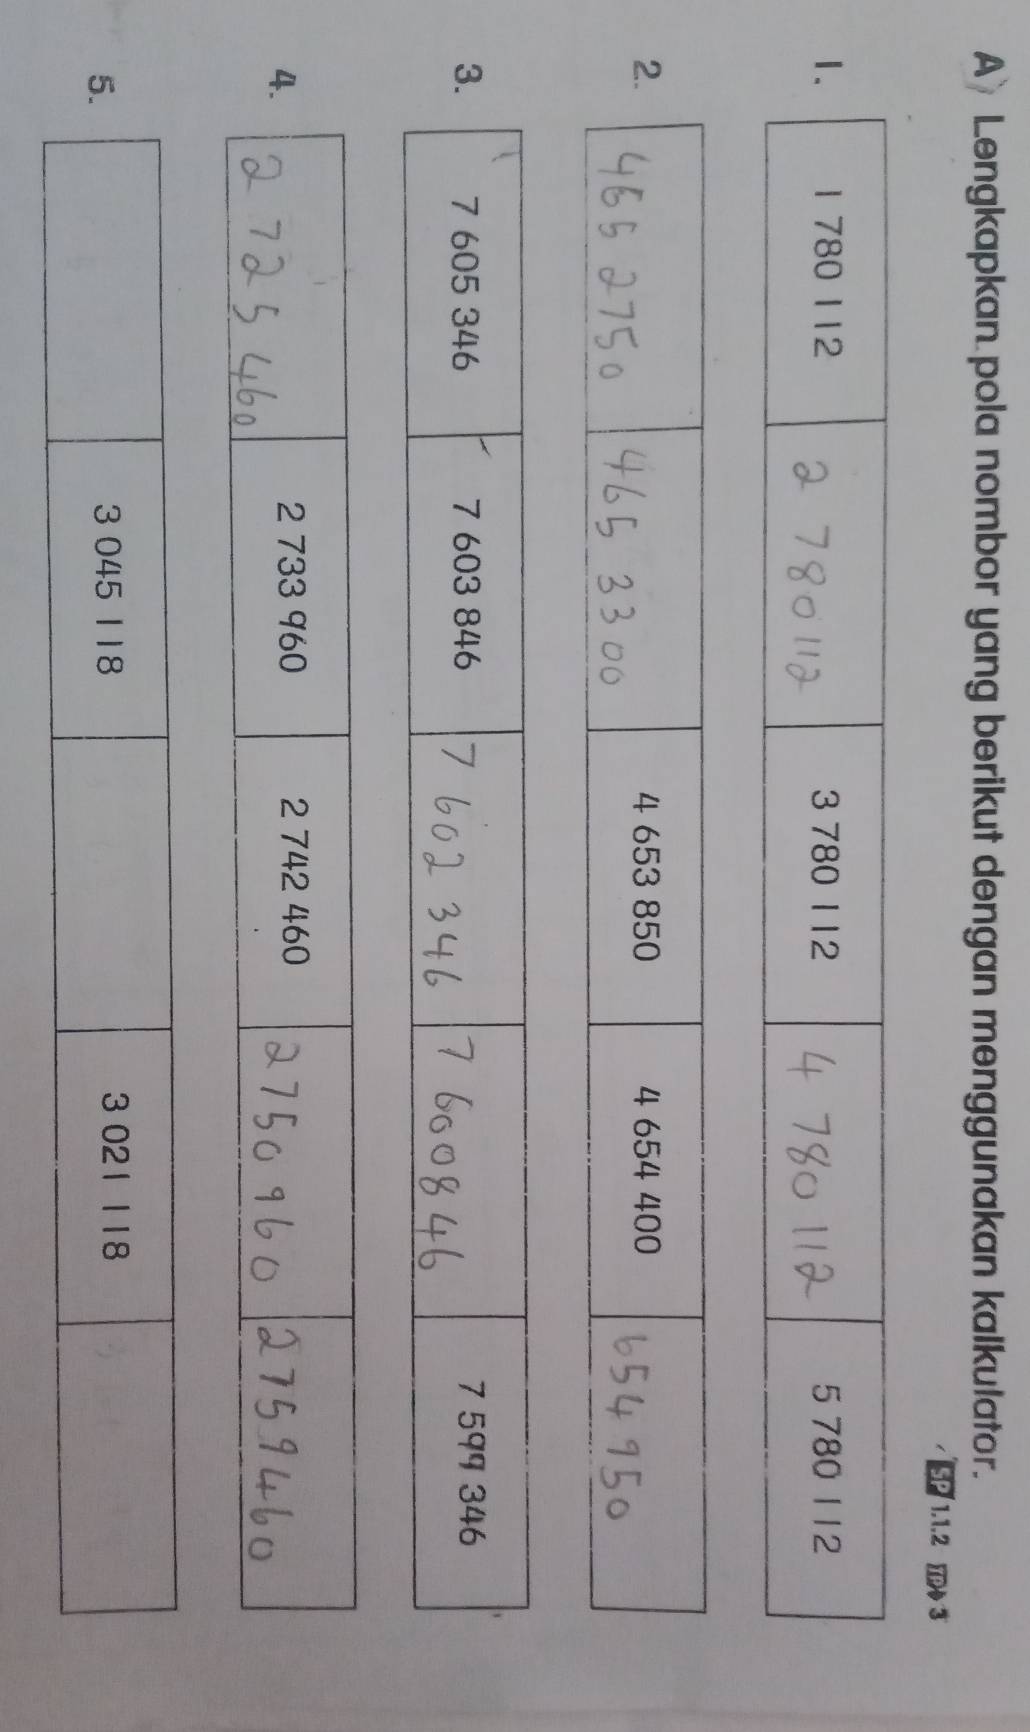 A) Lengkapkan pola nombor yang berikut dengan menggunakan kalkulator.
SP 1.1.2 TD 3
1. 1 780 112 2 780112 3 780 112 4 780 112 5 780 112
2. 465 2750 465 3300 4 653 850 4 654 400 654 950
3. 7 605 346 7 603 846 7 602 346 7 600846 7 599 346
4. 2 725 460 2 733 960 2 742 460 2750 960 2759460
5. 3 045 118 3 021 118